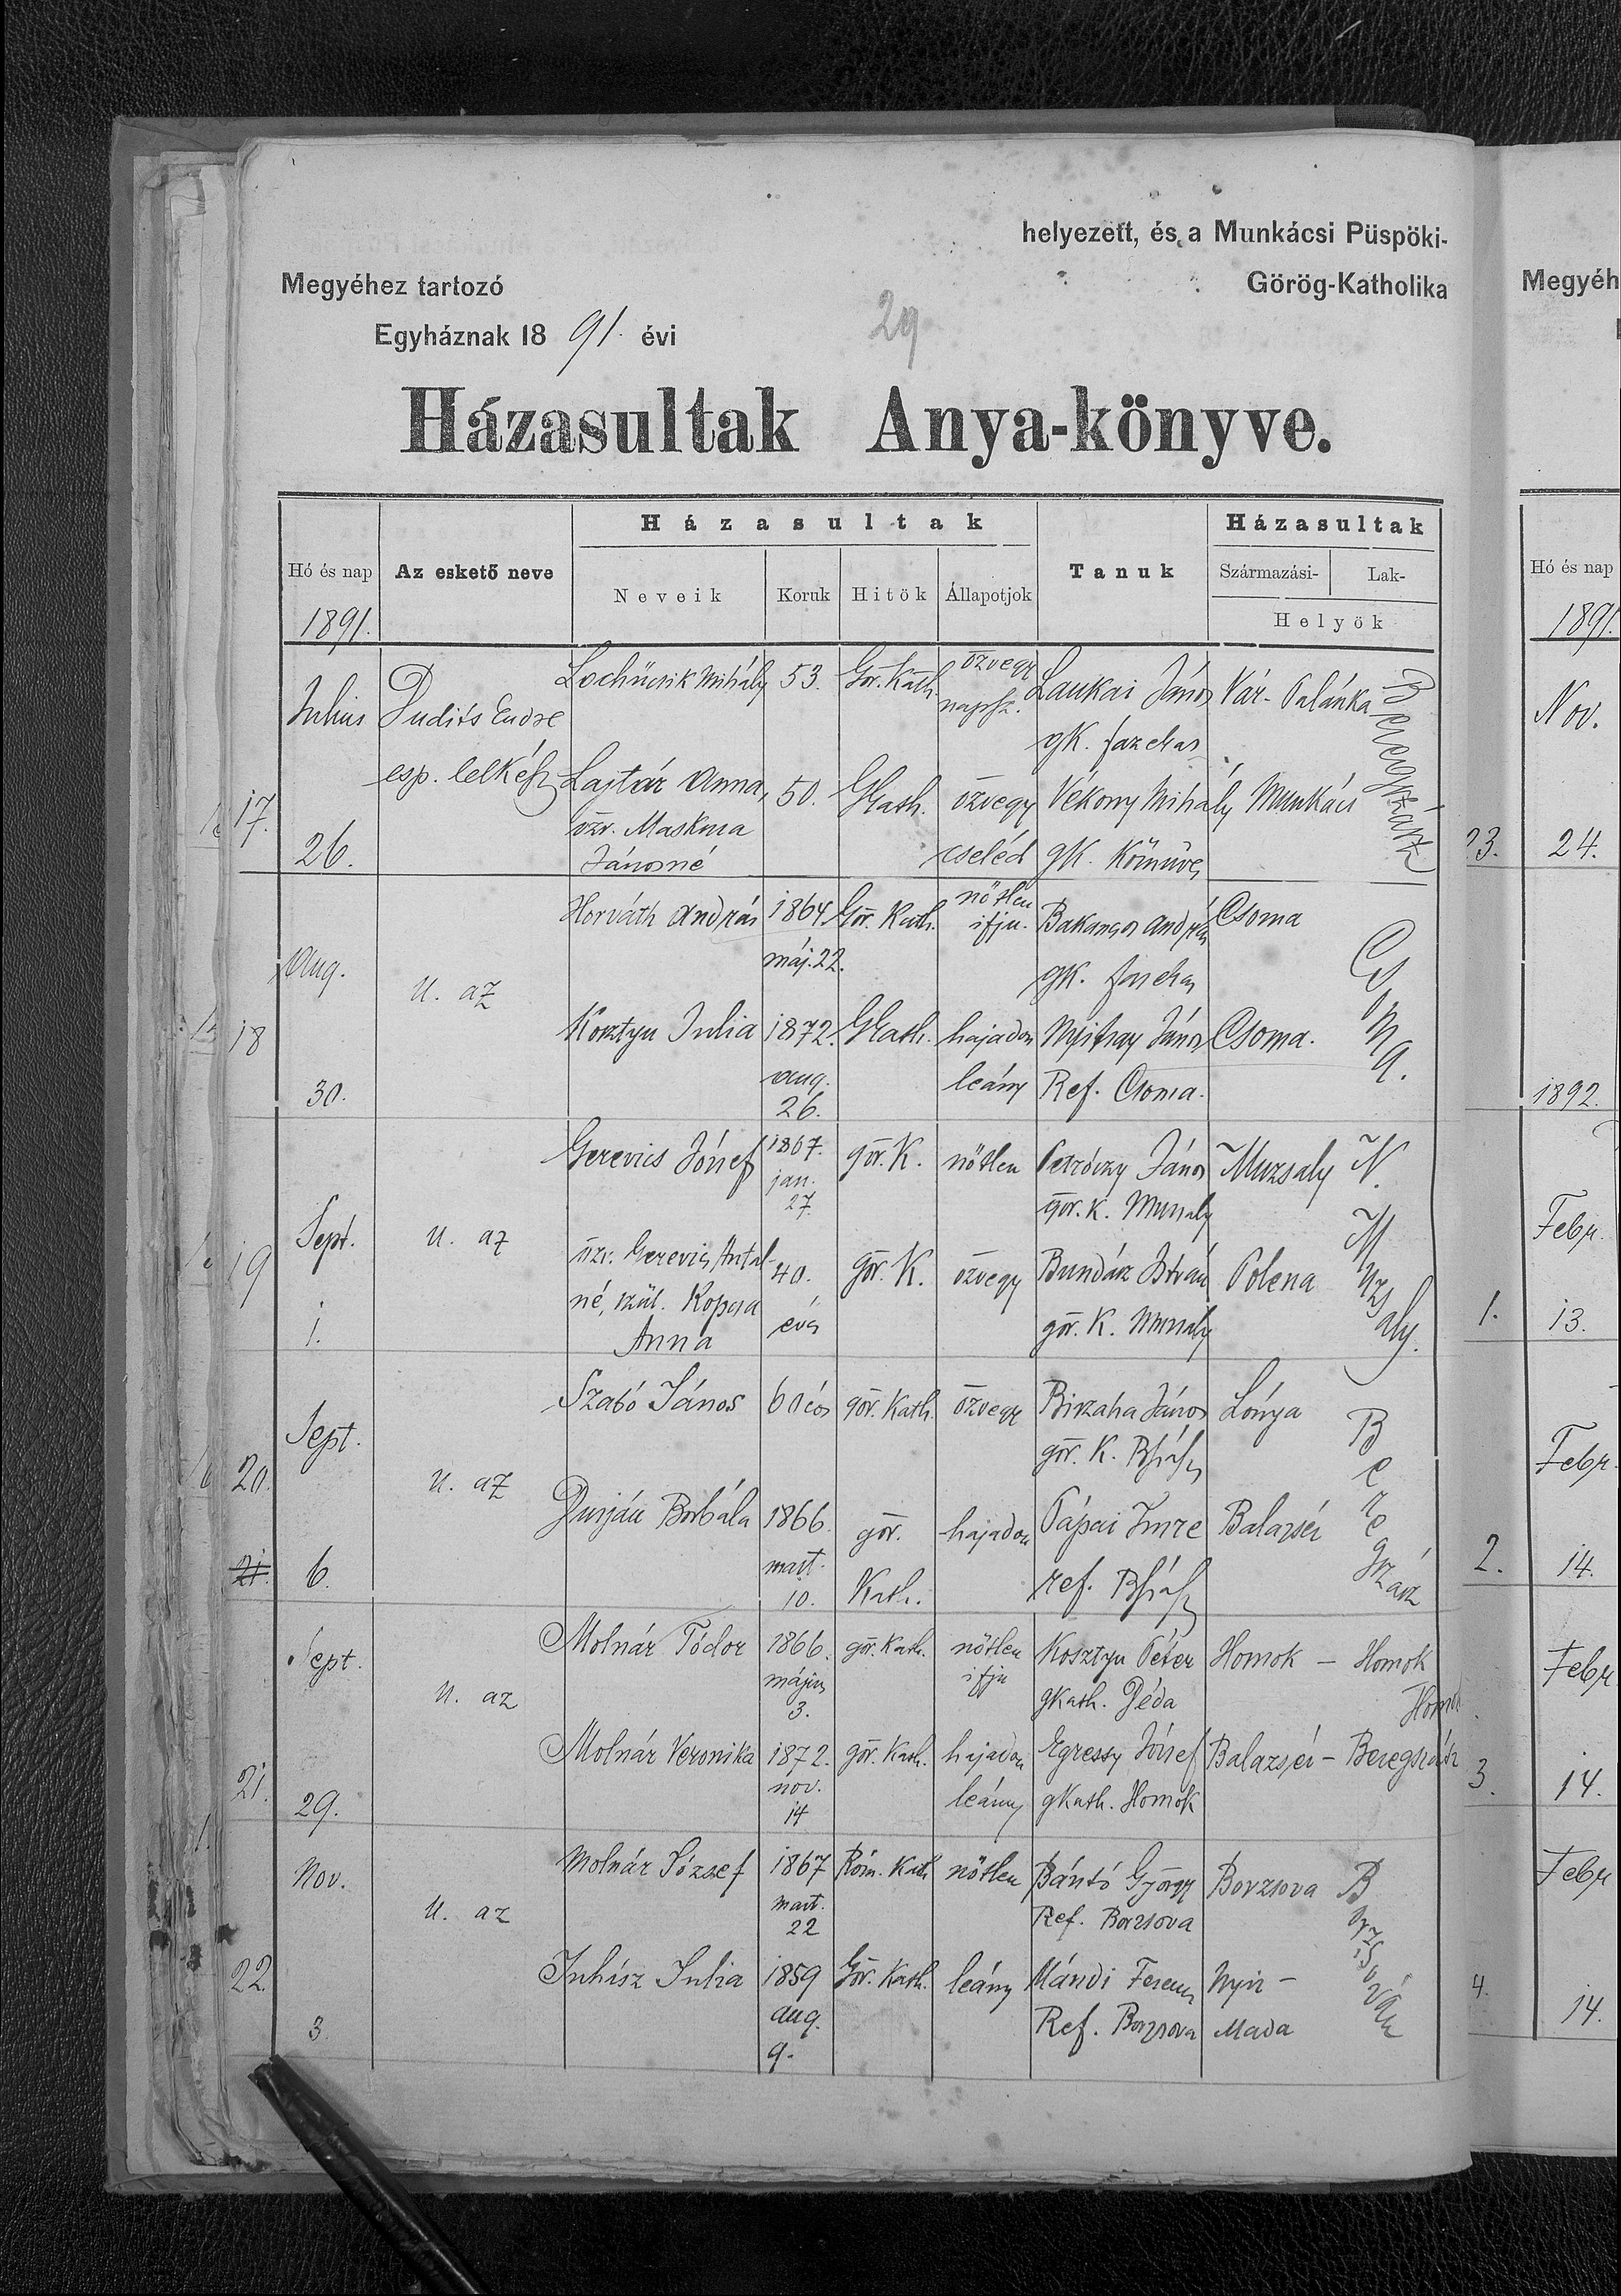 helyezett, és a Munkácsi Püspöki-
Megyéhez tartozó Görög-Katholika
Egyháznak 1891. évi
29
Házasultak Anya-könyve.
Hó és nap Az eskető neve Házasultak Tanuk Házasultak
Neveik Koruk Hitök Állapotjok Származási- Lak-
1891. Helyök
17.
Julius 26.
Dudits Endre
esp. lelkész
Lochücsik Mihály 53. Gör. Kath. özvegy napsz. Laukai János Vár-Palánka
gk. fazekas
Lajtár Anna, 50. GKath. özvegy Vékony Mihály Munkács
özv. Maskura
Jánosné cseléd gk. Kőmüves
Beregszász
18
Aug. 30.
u. az
Horváth András 1864 máj. 22. Gör. Kath. nőtlen ifju. Bakancsos András Csoma
gk.
Kosztyu Julia 1872. aug. 26. GKath. hajadon leány János Csoma.
Ref. Csoma.
Csoma.
19
Sept. 1.
u. az
Gerevics József 1867. jan. 27. gör. K. nőtlen Petróczy János Muzsaly
gör. K. Muzsaly
özv. Gerevics Antal-
né, szül. Kopcsa
Anna
40. éves gör. K. özvegy Bundár István Polena
gör. K. Muzsaly
N. Muzsaly.
20.
21.
Sept. 6.
u. az
Szabó János 60 éves gör. Kath. özvegy János Lónya
gör. K. Bszász
Durján Borbála 1866. mart. 10. gör. Kath. hajadon Pápai Imre Balazsér
ref. Bszász
Beregszász
21.
Sept. 29.
u. az
Molnár Tódor 1866. május 3. gör. Kath. nőtlen ifju Kosztyu Péter Homok – Homok
gkath. Déda
Homok
Molnár Veronika 1872. nov. 14 gör. Kath. hajadon leány Egressy József Balazsér – Beregszász
gkath. Homok
22.
Nov. 3.
u. az
Molnár József 1867 mart. 22 Róm. Kath nőtlen Bántó György Borzsova
Ref. Borzsova
Juhász Julia 1859 aug. 9. Gör. Kath. leány Mándi Ferencz Nyir-
Ref. Borzsova Mada
Borzsován
Megyéh
Hó és nap
1891.
23. Nov. 24.
1892.
1. Febr. 13.
2. Febr. 14.
3. Febr 14.
4. Febr 14.